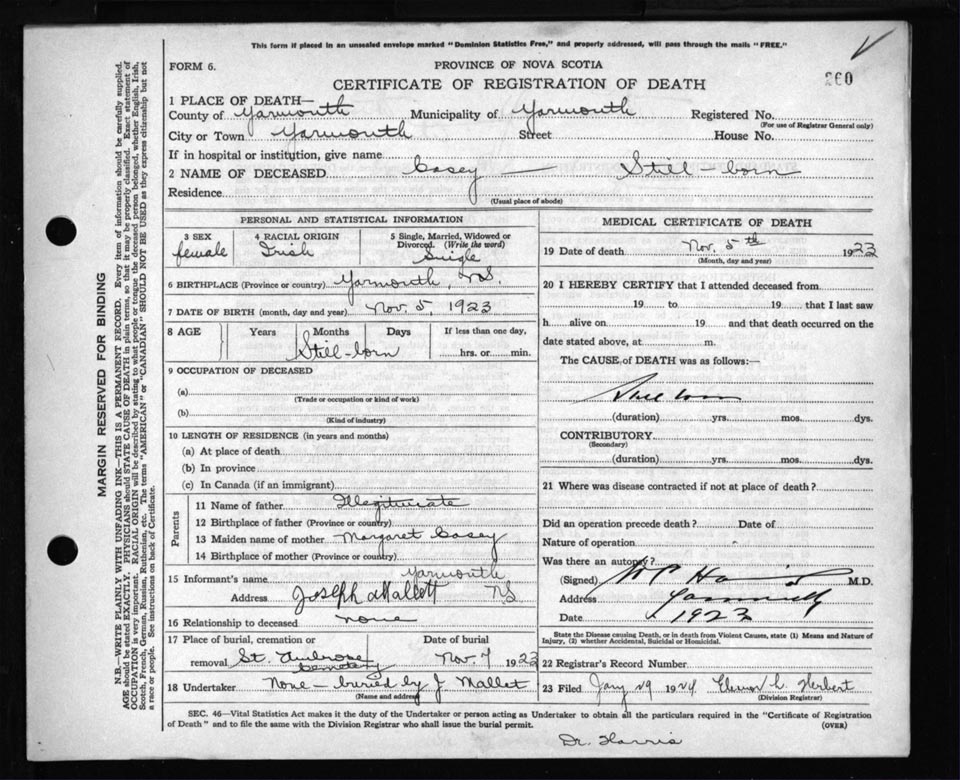 This form if placed in an unsealed envelope marked "Dominion Statistics Free," and properly addressed, will pass through the mails "FREE."
FORM 6.
PROVINCE OF NOVA SCOTIA
CERTIFICATE OF REGISTRATION OF DEATH
260
1 PLACE OF DEATH—
County of Yarmouth Municipality of Yarmouth Registered No.
(For use of Registrar General only)
City or Town Yarmouth Street House No.
If in hospital or institution, give name
2 NAME OF DECEASED Casey — Still-born
Residence
(Usual place of abode)
PERSONAL AND STATISTICAL INFORMATION
3 SEX female
4 RACIAL ORIGIN Irish
5 Single, Married, Widowed or Divorced. (Write the word) Single
6 BIRTHPLACE (Province or country) Yarmouth, N.S.
7 DATE OF BIRTH (month, day and year) Nov. 5, 1923
8 AGE Years Months Days If less than one day,
Still-born hrs. or min.
9 OCCUPATION OF DECEASED
(a)
(Trade or occupation or kind of work)
(b)
(Kind of industry)
10 LENGTH OF RESIDENCE (in years and months)
(a) At place of death
(b) In province
(c) In Canada (if an immigrant)
Parents
11 Name of father Illegitimate
12 Birthplace of father (Province or country)
13 Maiden name of mother Margaret Casey
14 Birthplace of mother (Province or country)
15 Informant's name Yarmouth
Address Joseph Mallett NS
16 Relationship to deceased none
17 Place of burial, cremation or Date of burial
removal St. Ambrose Cemetery Nov. 7 1923
18 Undertaker None - buried by J. Mallet
(Name and address)
MEDICAL CERTIFICATE OF DEATH
19 Date of death Nov. 5th 1923
(Month, day and year)
20 I HEREBY CERTIFY that I attended deceased from
19 to 19 that I last saw
h alive on 19 and that death occurred on the
date stated above, at m.
The CAUSE of DEATH was as follows:—
Still born
(duration) yrs. mos. dys.
CONTRIBUTORY
(Secondary)
(duration) yrs. mos. dys.
21 Where was disease contracted if not at place of death?
Did an operation precede death? Date of
Nature of operation
Was there an autopsy?
(Signed) M.D.
Address Yarmouth
Date 1923
State the Disease causing Death, or in death from Violent Causes, state (1) Means and Nature of
Injury, (2) whether Accidental, Suicidal or Homicidal.
22 Registrar's Record Number
23 Filed Jany 29 1924 Herbert
(Division Registrar)
SEC. 46—Vital Statistics Act makes it the duty of the Undertaker or person acting as Undertaker to obtain all the particulars required in the "Certificate of Registration
of Death" and to file the same with the Division Registrar who shall issue the burial permit. (OVER)
Dr. Harris
MARGIN RESERVED FOR BINDING
N.B.—WRITE PLAINLY WITH UNFADING INK—THIS IS A PERMANENT RECORD. Every item of information should be carefully supplied.
AGE should be stated EXACTLY. PHYSICIANS should STATE CAUSE OF DEATH in plain terms, so that it may be properly classified. Exact statement of
OCCUPATION is very important. RACIAL ORIGIN will be described by stating to what people or tongue the deceased person belonged, whether English, Irish,
Scotch, French, German, Russian, Ruthenian, etc. The terms "AMERICAN" or "CANADIAN" SHOULD NOT BE USED as they express citizenship but not
a race or people. See instructions on back of Certificate.